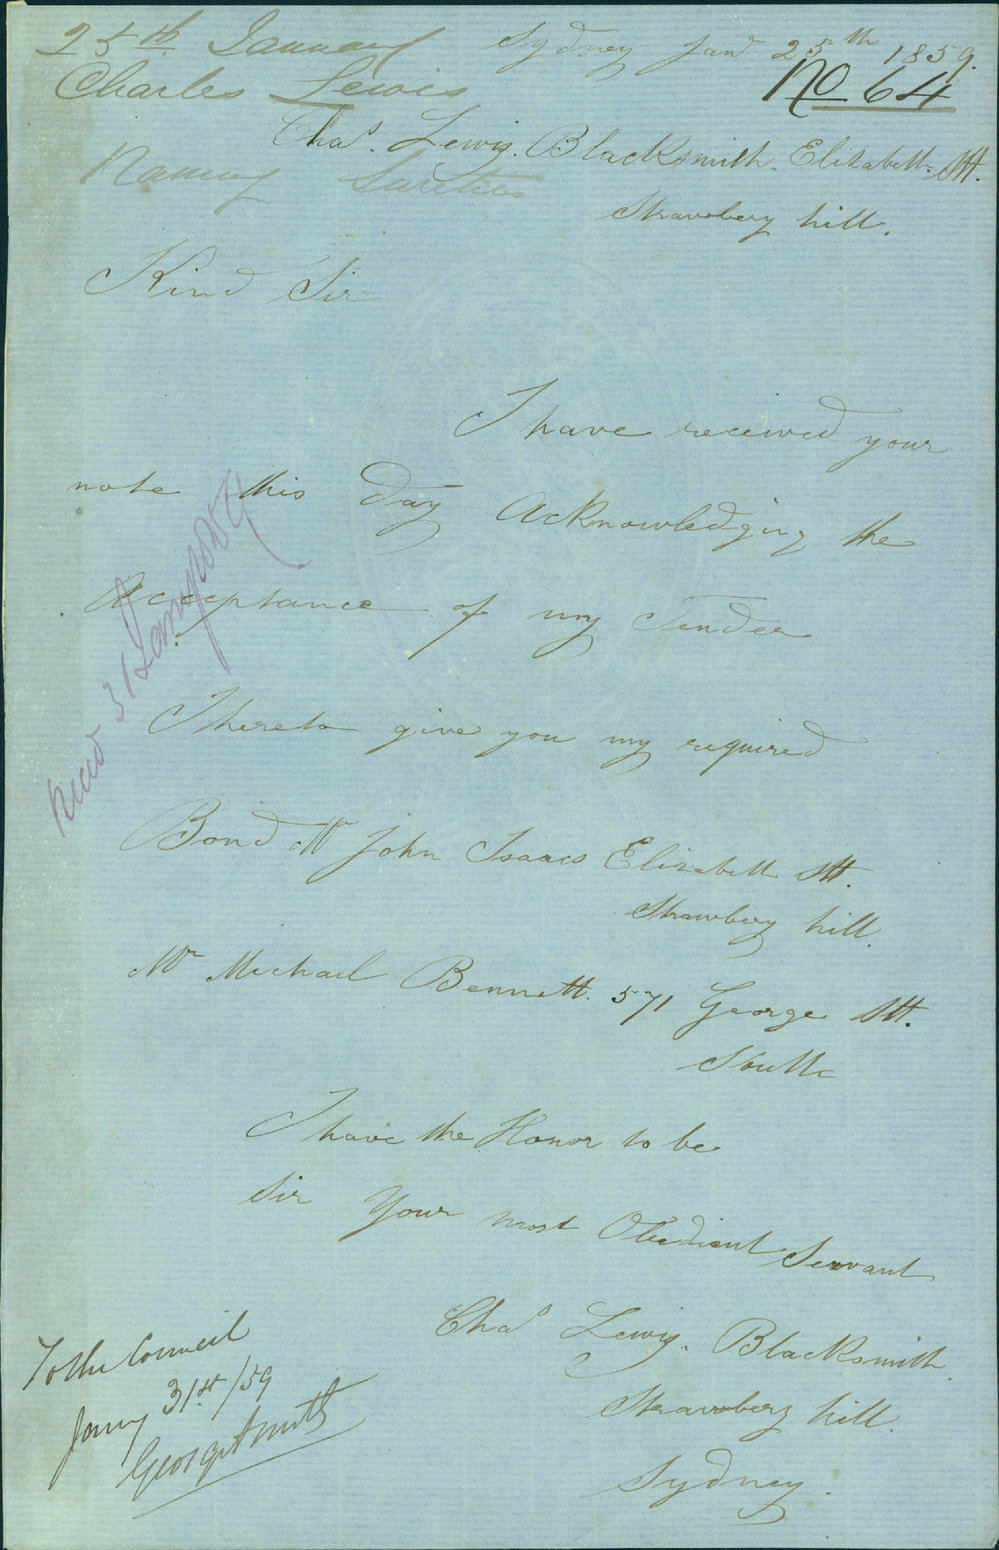 25th January
Charles Lewis
Naming Sureties
Sydney Jany 25th 1859.
No 64
Chas. Lewis. Blacksmith. Elizabeth Stt.
Strawbery hill.
Kind Sir
I have received your
note this day Acknowledging the
Acceptance of my Tender
Thereto give you my required
Bond Mr John Isaacs Elizabeth Stt.
Strawbery hill
Mr Michael Bennett. 571 George Stt.
South
I have the Honor to be
Sir Your most Obedient Servant
Chas Lewis. Blacksmith
Strawbery hill.
Sydney.
Read 31 Jany 1859
To the Council
Jany 31st/59
George Smith